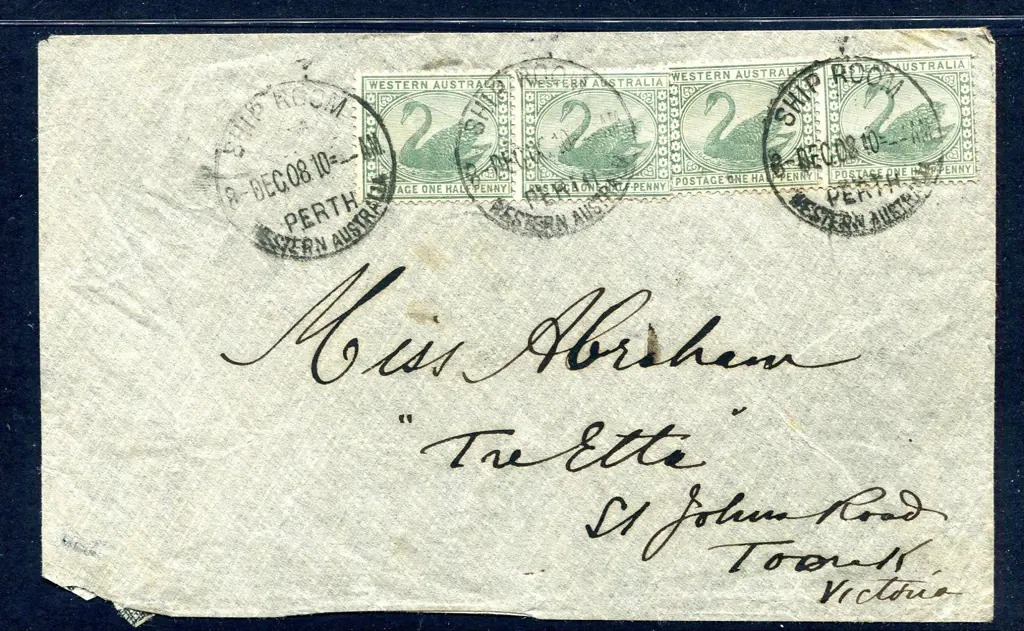 WESTERN AUSTRALIA
POSTAGE ONE HALF-PENNY
WESTERN AUSTRALIA
POSTAGE ONE HALF-PENNY
WESTERN AUSTRALIA
POSTAGE ONE HALF-PENNY
WESTERN AUSTRALIA
POSTAGE ONE HALF-PENNY
SHIP ROOM
DEC.08 10 AM
PERTH
WESTERN AUSTRALIA
SHIP ROOM
PERTH
WESTERN AUSTRALIA
SHIP ROOM
8 DEC.08 10 AM
PERTH
WESTERN AUSTRALIA
Miss Abraham
"Tre Etta"
St Johns Road
Toorak
Victoria